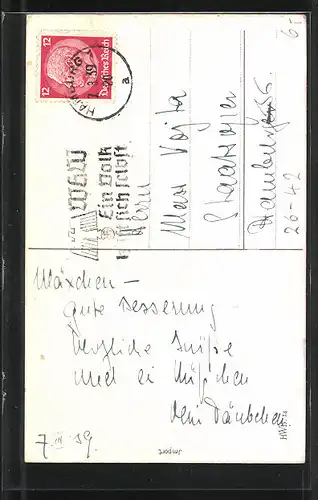 12
12
Deutsches Reich
a
WHW
Ein Volk
hilft sich selbst
Herrn
Max Vojta
Staatsoper
Hamburg 36.
26-42
6,-
Mäxchen -
gute Besserung
herzliche Grüße
und ein Küßchen
dein Täubchen.
7. III 39
Import